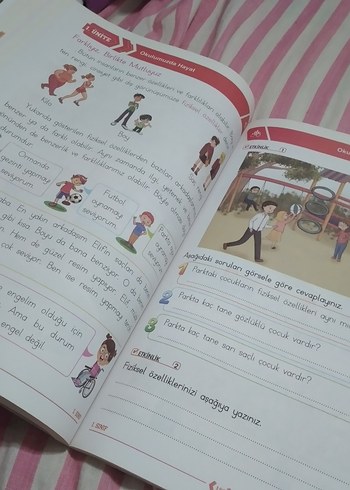 1. ÜNİTE
Okulumuzda Hayat
Farklıyız, Birlikte Mutluyuz
Bütün insanların benzer özellikleri ve farklılıkları
Kilo
Boy
Yukarıda gösterilen fiziksel özelliklerinden bazıları arkadaşlarına
benzer ya da farklı olabilir. Aynı zamanda ilgi, yetenek ve
yönünden de benzerlik ve farklılıklarınız olabilir. Böyle
durumdur.
Ormanda
gezinti yapmayı
seviyorum.
Futbol
oynamayı
seviyorum.
En yakın arkadaşım Elif'in saçları da
gibi kısa. Boyu da bana benziyor. O
Hem de güzel resim yapıyor. Elif
çok seviyor. Ben ise resim yapmayı
engelim olduğu için
Ama bu durum
engel değil.
1. SINIF
ETKİNLİK 1
Oku
Aşağıdaki soruları görsele göre cevaplayınız.
1 Parktaki çocukların fiziksel özellikleri aynı mı
2 Parkta kaç tane gözlüklü çocuk vardır?
3 Parkta kaç tane sarı saçlı çocuk vardır?
ETKİNLİK 2
Fiziksel özelliklerinizi aşağıya yazınız.
1. SINIF